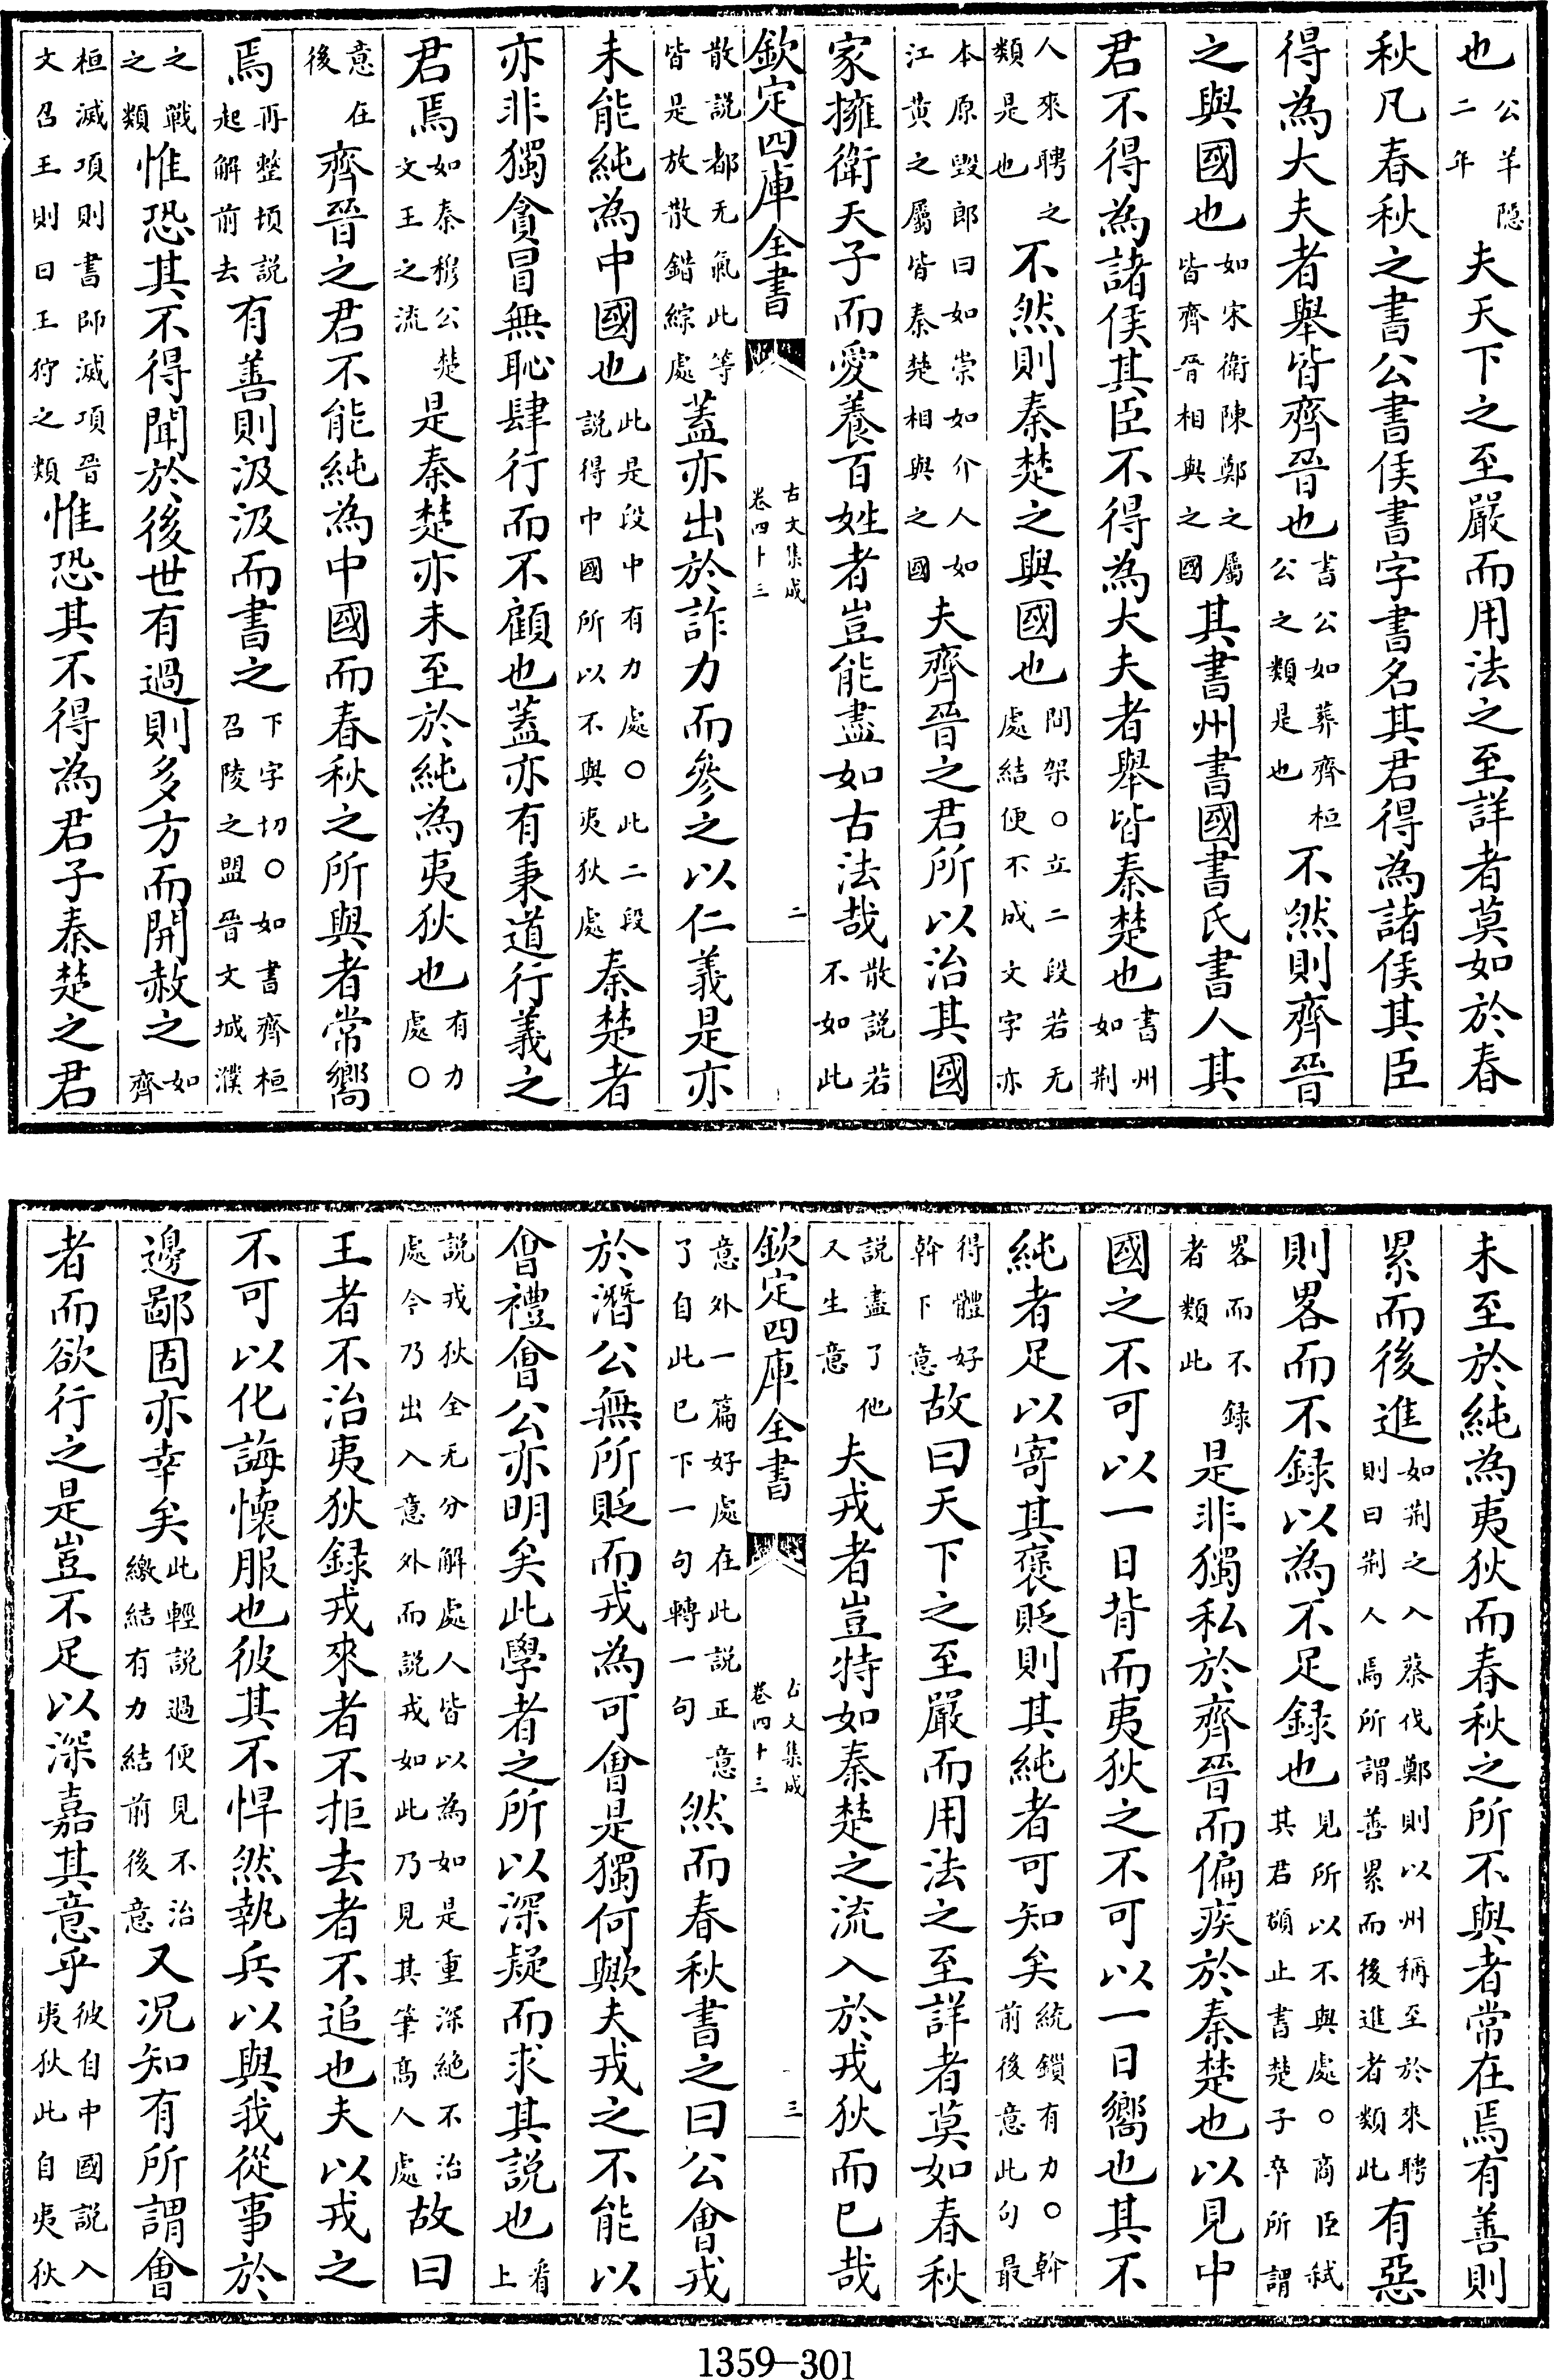 也公羊隐二年夫天下之至嚴而用法之至詳者莫如於春
秋凡春秋之書公書侯書字書名其君得為諸侯其臣
得為大夫者舉皆齊晉也書公如葬齊桓公之類是也不然則齊晉
之與國也如宋衛陳鄭之屬皆齊晉相與之國其書州書國書氏書人其
君不得為諸侯其臣不得為大夫者舉皆秦楚也書州如荆
人來聘之類是也不然則秦楚之與國也間架○立二段若无處結便不成文字亦
本原毁郎曰如崇如介人如江黄之屬皆秦楚相與之國夫齊晉之君所以治其國
家擁衛天子而愛養百姓者豈能盡如古法哉散説若不如此
欽定四庫全書 古文集成卷四十三 二
散説都无氣此等皆是放散錯綜處蓋亦出於詐力而參之以仁義是亦
未能純為中國也此是段中有力處○此二段説得中國所以不與夷狄處秦楚者
亦非獨貪冒無恥肆行而不顧也蓋亦有秉道行義之
君焉如秦穆公楚文王之流是秦楚亦未至於純為夷狄也有力處○
意在後齊晉之君不能純為中國而春秋之所與者常嚮
焉再整頓説起解前去有善則汲汲而書之下字切○如書齊桓召陵之盟晉文城濮
之戰之類惟恐其不得聞於後世有過則多方而開赦之如齊
桓滅項則書師滅項晉文召王則曰王狩之類惟恐其不得為君子秦楚之君
未至於純為夷狄而春秋之所不與者常在焉有善則
累而後進如荆之入蔡伐鄭則以州稱至於來聘則曰荆人焉所謂善累而後進者類此有惡
則畧而不録以為不足録也見所以不與處○商臣弑其君頵止書楚子卒所謂
畧而不録者類此是非獨私於齊晉而偏疾於秦楚也以見中
國之不可以一日背而夷狄之不可以一日嚮也其不
純者足以寄其褒貶則其純者可知矣統鎖有力○斡前後意此句最
得體好斡下意故曰天下之至嚴而用法之至詳者莫如春秋
説盡了他又生意夫戎者豈特如秦楚之流入於戎狄而已哉
欽定四庫全書 古文集成卷四十三 三
意外一篇好處在此説正意了自此已下一句轉一句然而春秋書之曰公會戎
於潛公無所貶而戎為可會是獨何歟夫戎之不能以
會禮會公亦明矣此學者之所以深疑而求其説也看上
説戎狄全无分解處人皆以為如是重深絶不治處今乃出入意外而説戎如此乃見其筆高人處故曰
王者不治夷狄録戎來者不拒去者不追也夫以戎之
不可以化誨懷服也彼其不悍然執兵以與我從事於
邊鄙固亦幸矣此輕説過便見不治繳結有力結前後意又况知有所謂會
者而欲行之是豈不足以深嘉其意乎彼自中國説入夷狄此自夷狄
1359-301